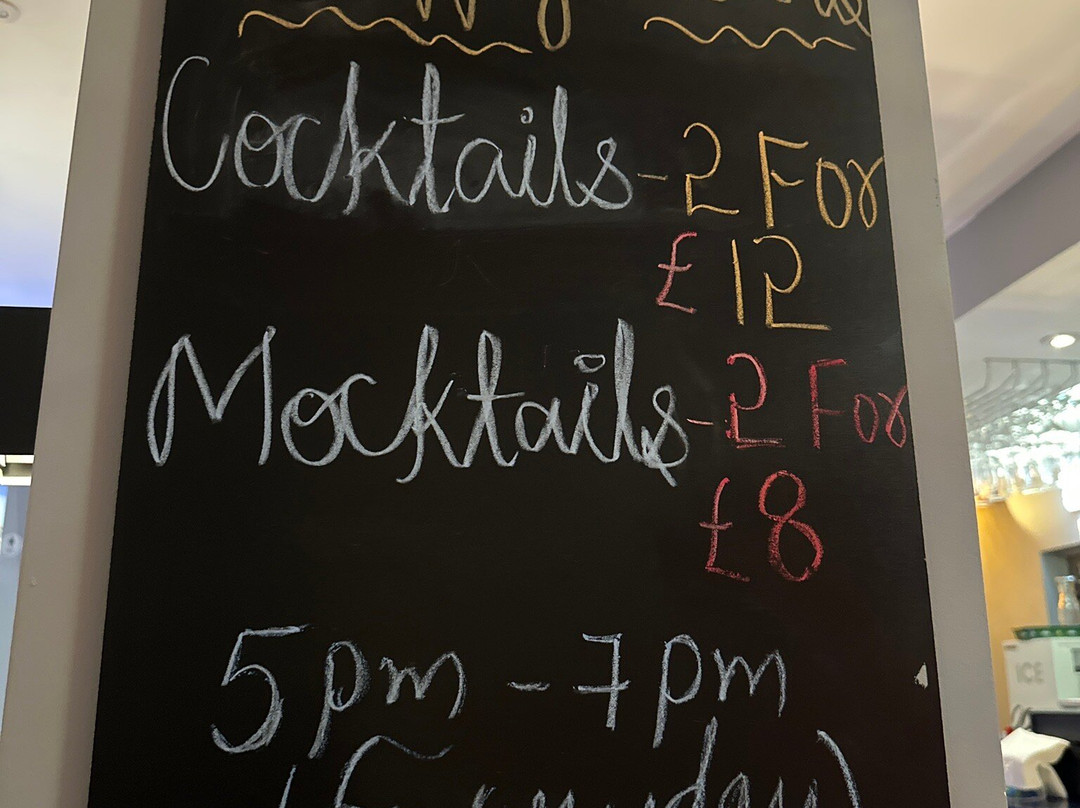 Cocktails - 2 For
£12
Mocktails - 2 For
£8
5pm - 7pm
(Everyday)
ICE